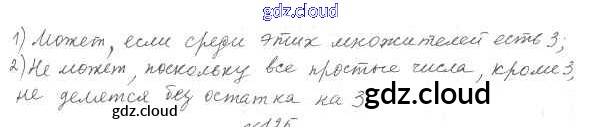 gdz.cloud
1) Может, если среди этих множителей есть 3;
2) Не может, поскольку все простые числа, кроме 3,
не делятся без остатка на 3
gdz.cloud